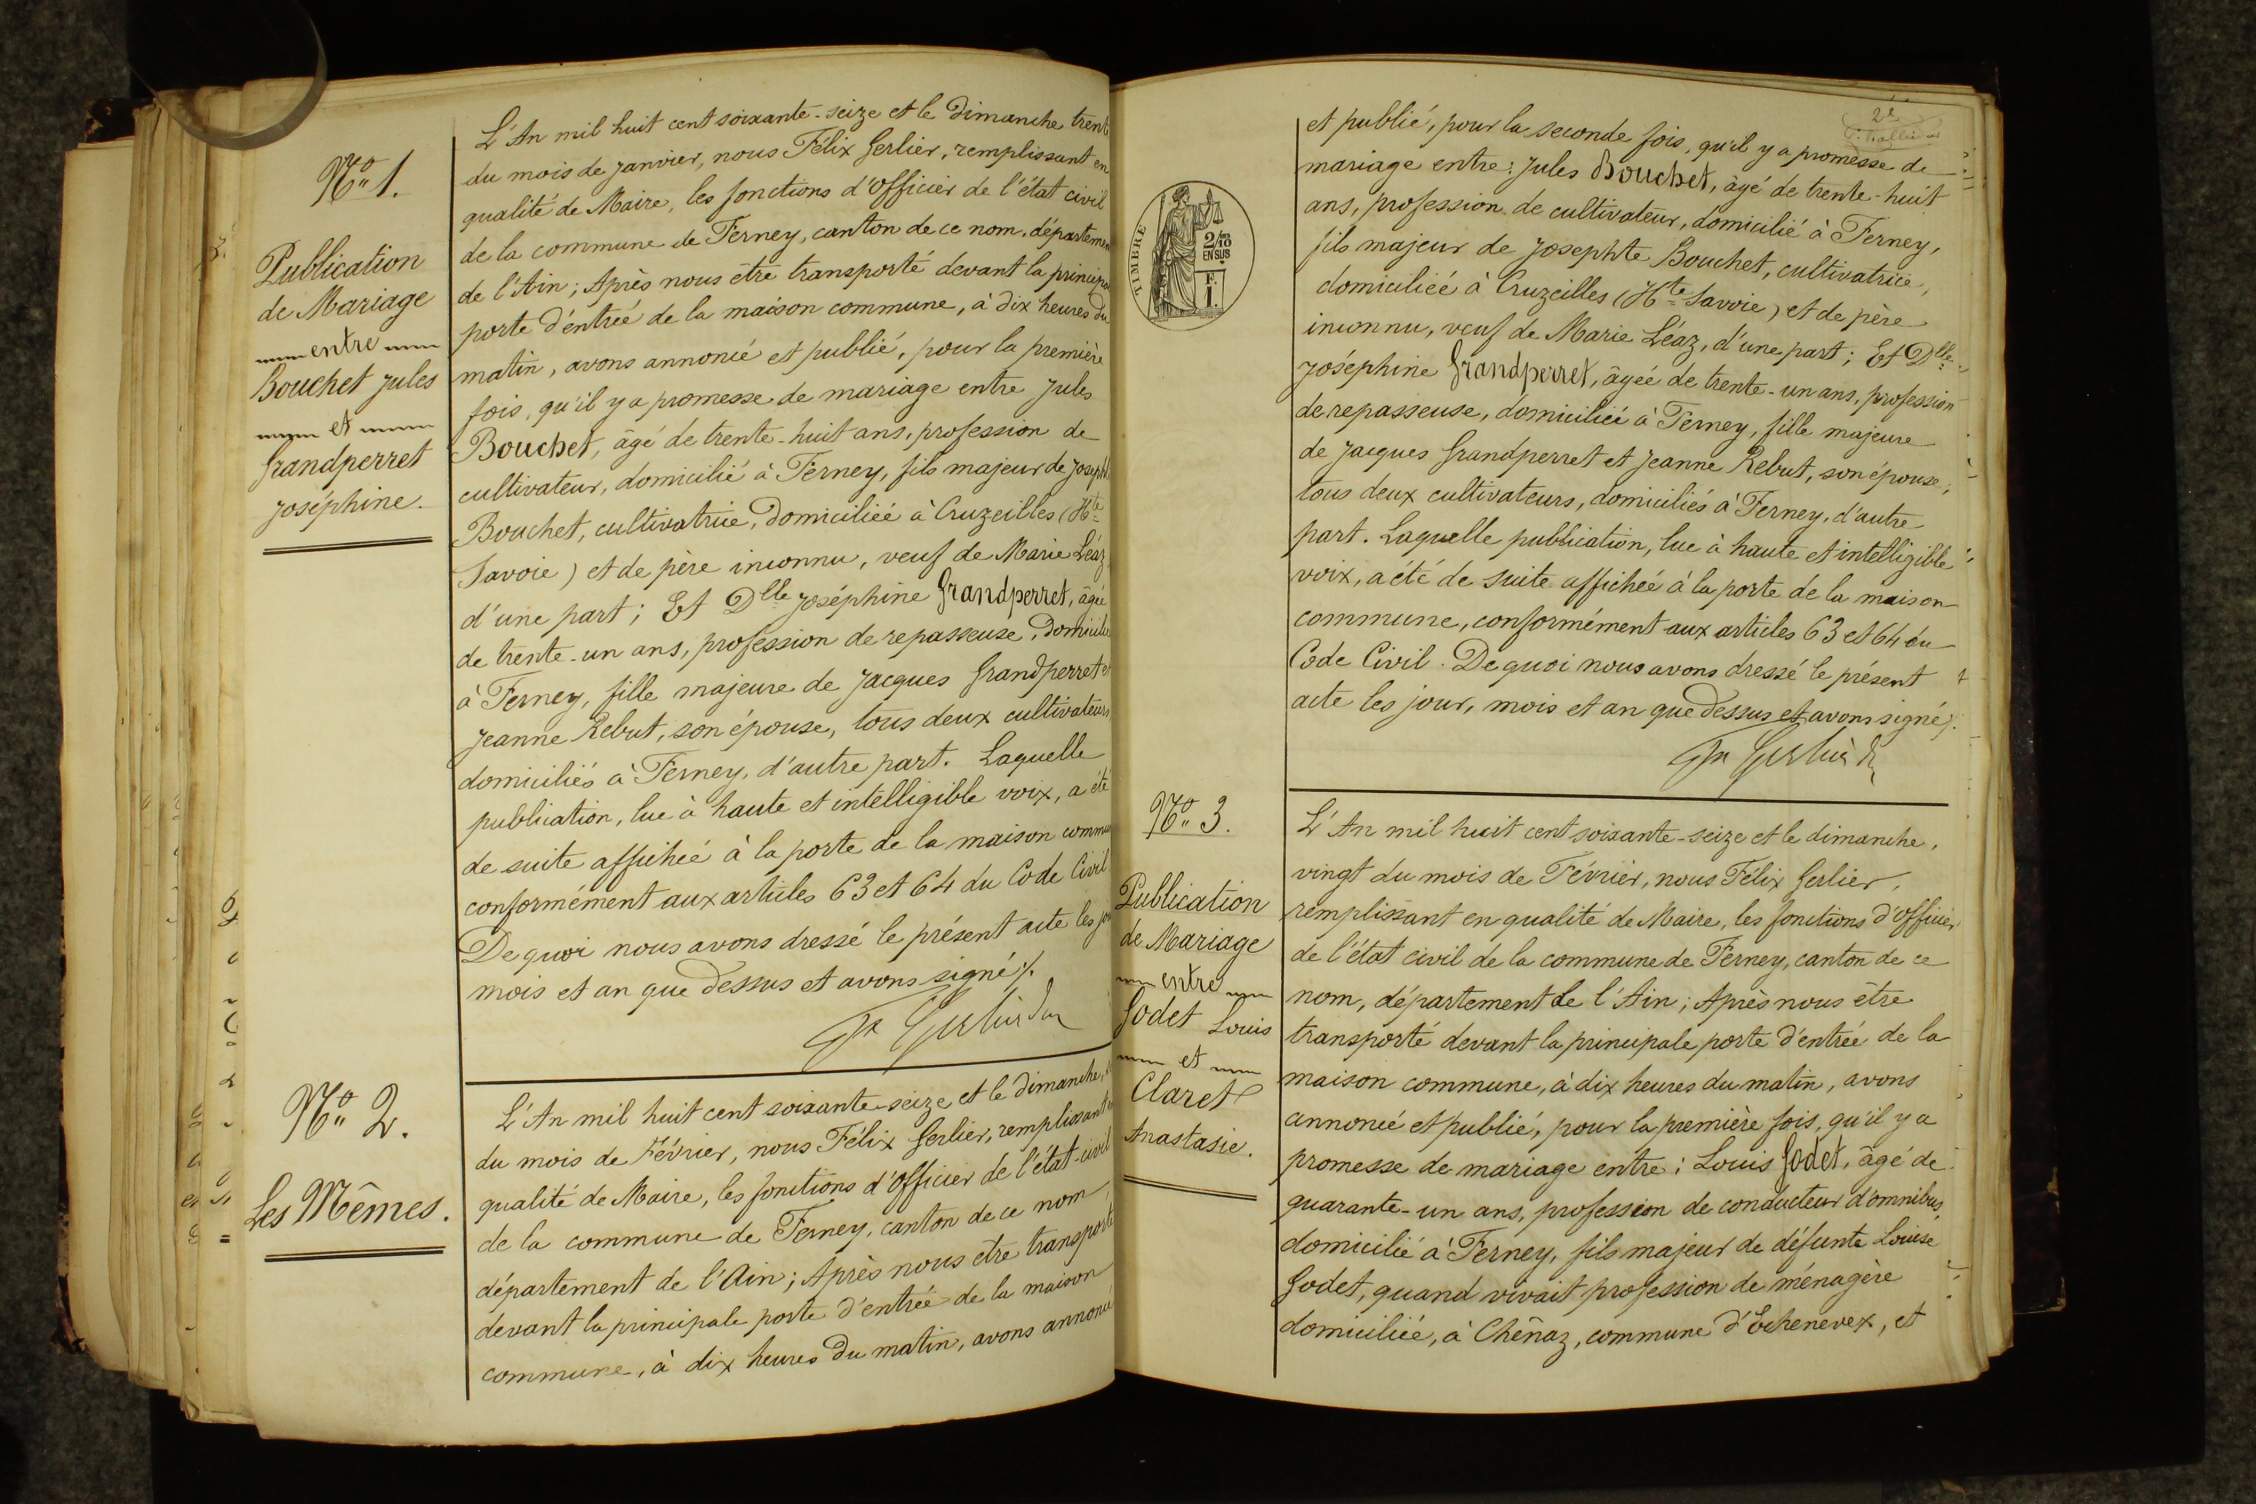 Nº 1.
Publication
de Mariage
entre
Bouchet Jules
et
Grandperret
Joséphine.
L'An mil huit cent soixante-seize et le Dimanche trent
du mois de Janvier, nous Félix Gerlier, remplissant en
qualité de Maire, les fonctions d'Officier de l'état civil
de la commune de Ferney, canton de ce nom, départemen
de l'Ain; Après nous être transporté devant la principa
porte d'éntrée de la maison commune, à dix heures du
matin, avons annoncé et publié, pour la première
fois, qu'il y a promesse de mariage entre Jules
Bouchet, âgé de trente-huit ans, profession de
cultivateur, domicilié à Ferney, fils majeur de Joseph
Bouchet, cultivatrice, Domiciliée à Cruzeilles (Hte
Savoie) et de père inconnu, veuf de Marie Léaz,
d'une part; Et Dlle Joséphine Grandperret, âgée
de trente-un ans, profession de repasseuse, Domicilié
à Ferney, fille majeure de Jacques Grandperret et
Jeanne Rebut, son épouse, tous deux cultivateurs
domiciliés à Ferney, d'autre part. Laquelle
publication, lue à haute et intelligible voix, a été
de suite affichée à la porte de la maison commu
conformément aux articles 63 et 64 du Code Civil
De quoi nous avons dressé le présent acte les jou
mois et an que dessus et avons signé./.
Nº 2.
Les Mêmes.
L'An mil huit cent soixante-seize et le dimanche,
du mois de Février, nous Félix Gerlier, remplissant
qualité de Maire, les fonctions d'Officier de l'état-civil
de la commune de Ferney, canton de ce nom
département de l'Ain; Après nous être transporté
devant la principale porte d'entrée de la maison
commune, à dix heures du matin, avons annoncé
2e
TIMBRE
2/10
EN SUS
F.
1.
et publié, pour la seconde fois, qu'il y a promesse de
mariage entre: Jules Bouchet, âgé de trente-huit
ans, profession de cultivateur, domicilié à Ferney,
fils majeur de Josephte Bouchet, cultivatrice,
domiciliée à Cruzeilles (Hte Savoie) et de père
inconnu, veuf de Marie Léaz, d'une part; Et Dlle
Joséphine Grandperret, âgée de trente-un ans, profession
de repasseuse, domiciliée à Ferney, fille majeure
de Jacques Grandperret et Jeanne Rebut, son épouse,
tous deux cultivateurs, domiciliés à Ferney, d'autre
part. Laquelle publication, lue à haute et intelligible
voix, a été de suite affichée à la porte de la maison
commune, conformément aux articles 63 et 64 du
Code Civil. De quoi nous avons dressé le présent
acte les jour, mois et an que dessus et avons signé./.
Nº 3.
Publication
de Mariage
entre
Godet Louis
et
Claret
Anastasie.
L'An mil huit cent soixante-seize et le dimanche,
vingt du mois de Février, nous Félix Gerlier,
remplissant en qualité de Maire, les fonctions d'Officier
de l'état civil de la commune de Ferney, canton de ce
nom, département de l'Ain; Après nous être
transporté devant la principale porte d'éntrée de la
maison commune, à dix heures du matin, avons
annoncé et publié, pour la première fois, qu'il y a
promesse de mariage entre: Louis Godet, âgé de
quarante-un ans, profession de conducteur d'omnibus,
domicilié à Ferney, fils majeur de défunte Louise
Godet, quand vivait profession de ménagère
domiciliée, à Chênaz, commune d'Echenevex, et